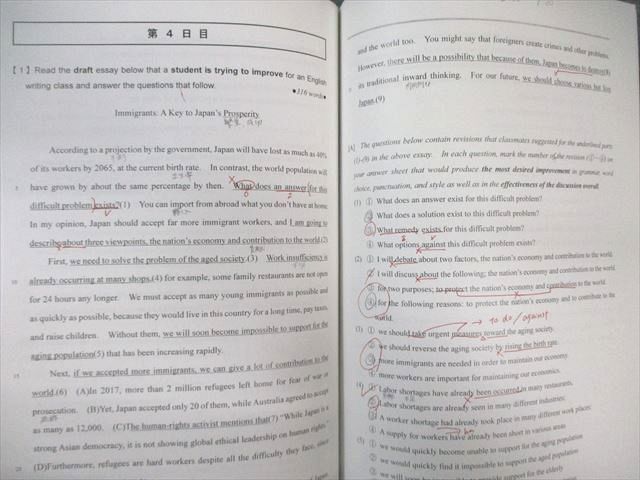 第 4 日 目
【1】Read the draft essay below that a student is trying to improve for an English
writing class and answer the questions that follow.
●316 words●
Immigrants: A Key to Japan's Prosperity
According to a projection by the government, Japan will have lost as much as 40%
of its workers by 2065, at the current birth rate. In contrast, the world population will
5 have grown by about the same percentage by then. What does an answer for this
difficult problem exists?(1) You can import from abroad what you don't have at home.
In my opinion, Japan should accept far more immigrant workers, and I am going to
describe about three viewpoints, the nation's economy and contribution to the world.(2)
First, we need to solve the problem of the aged society.(3) Work insufficiency is
10 already occurring at many shops.(4) for example, some family restaurants are not open
for 24 hours any longer. We must accept as many young immigrants as possible and
as quickly as possible, because they would live in this country for a long time, pay taxes,
and raise children. Without them, we will soon become impossible to support for the
aging population(5) that has been increasing rapidly.
15 Next, if we accepted more immigrants, we can give a lot of contribution to the
world.(6) (A)In 2017, more than 2 million refugees left home for fear of war or
prosecution. (B)Yet, Japan accepted only 20 of them, while Australia agreed to accept
as many as 12,000. (C)The human-rights activist mentions that(7) "While Japan is a
strong Asian democracy, it is not showing global ethical leadership on human rights."
20 (D)Furthermore, refugees are hard workers despite all the difficulty they face, since
and the world too. You might say that foreigners create crimes and other problems.
However, there will be a possibility that because of them, Japan becomes to destroy(8)
its traditional inward thinking. For our future, we should choose various but live
Japan.(9)
[A] The questions below contain revisions that classmates suggested for the underlined parts
(1)-(9) in the above essay. In each question, mark the number of the revision (①-④) on
your answer sheet that would produce the most desired improvement in grammar, word
choice, punctuation, and style as well as in the effectiveness of the discussion overall.
(1) ① What does an answer exist for this difficult problem?
② What does a solution exist to this difficult problem?
③ What remedy exists for this difficult problem?
④ What options against this difficult problem exists?
(2) ① I will debate about two factors, the nation's economy and contribution to the world.
② I will discuss about the following; the nation's economy and contribution to the world.
③ for two purposes; to protect the nation's economy and contribution to the world.
④ for the following reasons: to protect the nation's economy and to contribute to the
world.
to do / against
(3) ① we should take urgent measures toward the aging society.
② we should reverse the aging society by rising the birth rate.
③ more immigrants are needed in order to maintain our economy.
④ more workers are important for maintaining our economics.
(4) ① Labor shortages have already been occurred in many restaurants,
② Labor shortages are already seen in many different industries;
③ A worker shortage had already took place in many different work places:
④ A supply for workers have already been short in various areas
(5) ① we would quickly become unable to support for the aging population
② we would quickly find it impossible to support the aged population